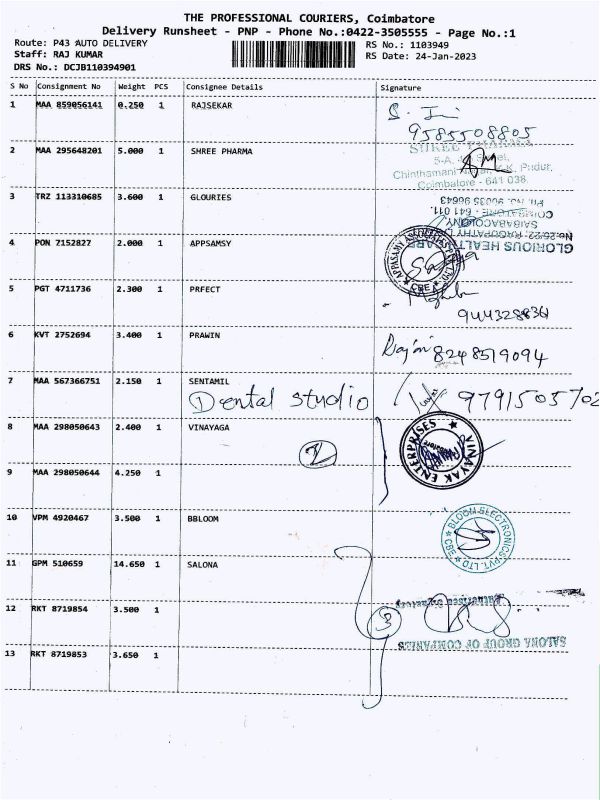 THE PROFESSIONAL COURIERS, Coimbatore
Delivery Runsheet - PNP - Phone No.:0422-3505555 - Page No.:1
Route: P43 AUTO DELIVERY RS No.: 1103949
Staff: RAJ KUMAR RS Date: 24-Jan-2023
DRS No.: DCJB110394901
S No Consignment No Weight PCS Consignee Details Signature
1 MAA 859056141 0.250 1 RAJSEKAR
9585508805
2 MAA 295648201 5.000 1 SHREE PHARMA
SHREE PHARMA
Coimbatore - 641 038.
3 TRZ 113310685 3.600 1 GLOURIES
GLORIOUS HEALTH CARE
SAIBABACOLONY,
COIMBATORE - 641 011.
4 PON 7152827 2.000 1 APPSAMSY
APPASAMY ASSOCIATES
CBE
5 PGT 4711736 2.300 1 PRFECT
9443288834
6 KVT 2752694 3.400 1 PRAWIN
8248519094
7 MAA 567366751 2.150 1 SENTAMIL
Dental studio 9791505702
8 MAA 298050643 2.400 1 VINAYAGA
VINAYAK ENTERPRISES
2
9 MAA 298050644 4.250 1
10 VPM 4920467 3.500 1 BBLOOM
BLOOM ELECTRONICS PVT. LTD
CBE
11 GPM 510659 14.650 1 SALONA
12 RKT 8719854 3.500 1
Authorised Signatory
3
SALONA GROUP OF COMPANIES
13 RKT 8719853 3.650 1